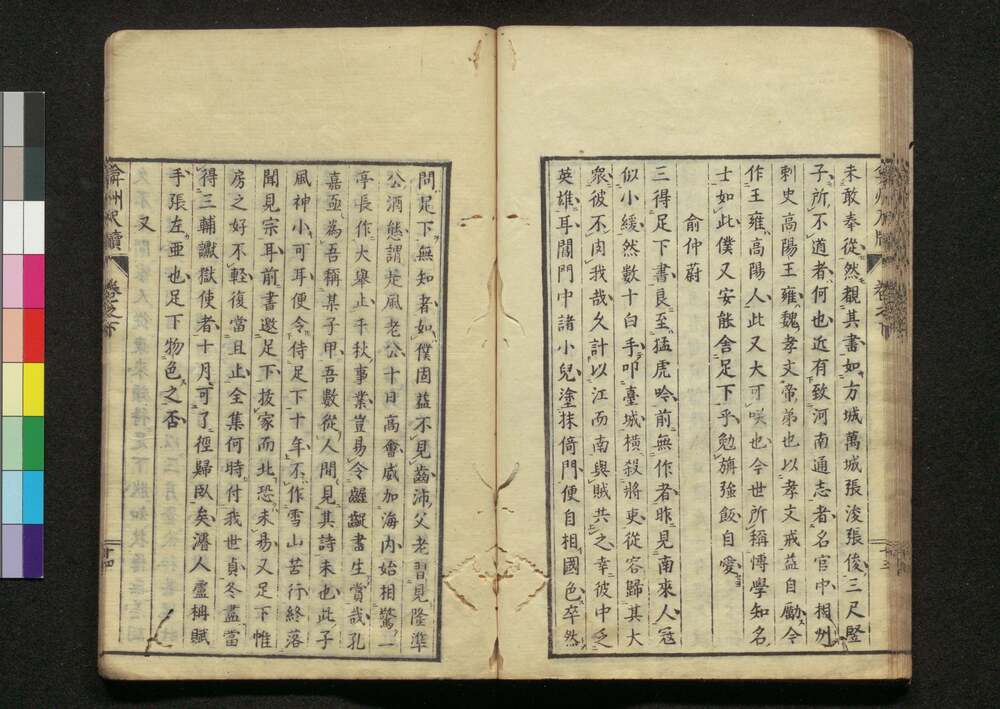 未敢奉從然觀其書如方城萬城張浚張俊三尺竪
子所不道者何也近有致河南通志者名官中相州
刺史高陽王雍魏孝文帝弟也以孝文戒益自勵今
作王雍高陽人此又大可咲也今世所稱博學知名
士如此僕又安能舍足下乎勉旃強飯自愛
俞仲蔚
三得足下書良至猛虎吟前無作者昨見南來人冦
似小緩然數十白手叩臺城橫殺將吏從容歸其大
衆彼不肉我哉久計以江而南與賊共之幸彼中乏
英雄耳閶門中諸小兒塗抹倚門便自相國色卒然
問足下無知者如僕固益不見齒沛父老習見隆準
公酒態謂是風老公十日高會威加海內始相驚一
亭長作大舉止千秋事業豈易令齷齪書生賞哉孔
嘉亟爲吾稱某子甲吾數從人間見其詩未也此子
風神小可耳便令侍足下十年不作雪山苦行終落
聞見宗耳前書邀足下挍家而北恐未易又足下惟
房之好不輕復當且止全集何時付我世貞冬盡當
得三輔讞獄使者十月可了徑歸臥矣濬人盧柟賦
手張左亞也足下物色之否
又
弇州尺牘 卷之下 十四